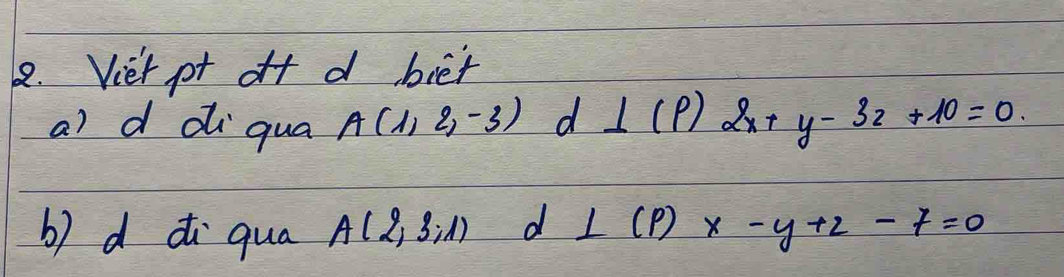 2. Viết pt đt d biết
a) d đi qua A(1, 2, -3) d ⊥ (P) 2x + y - 3z + 10 = 0.
b) d đi qua A(2; 3; 1) d ⊥ (P) x - y + z - 7 = 0